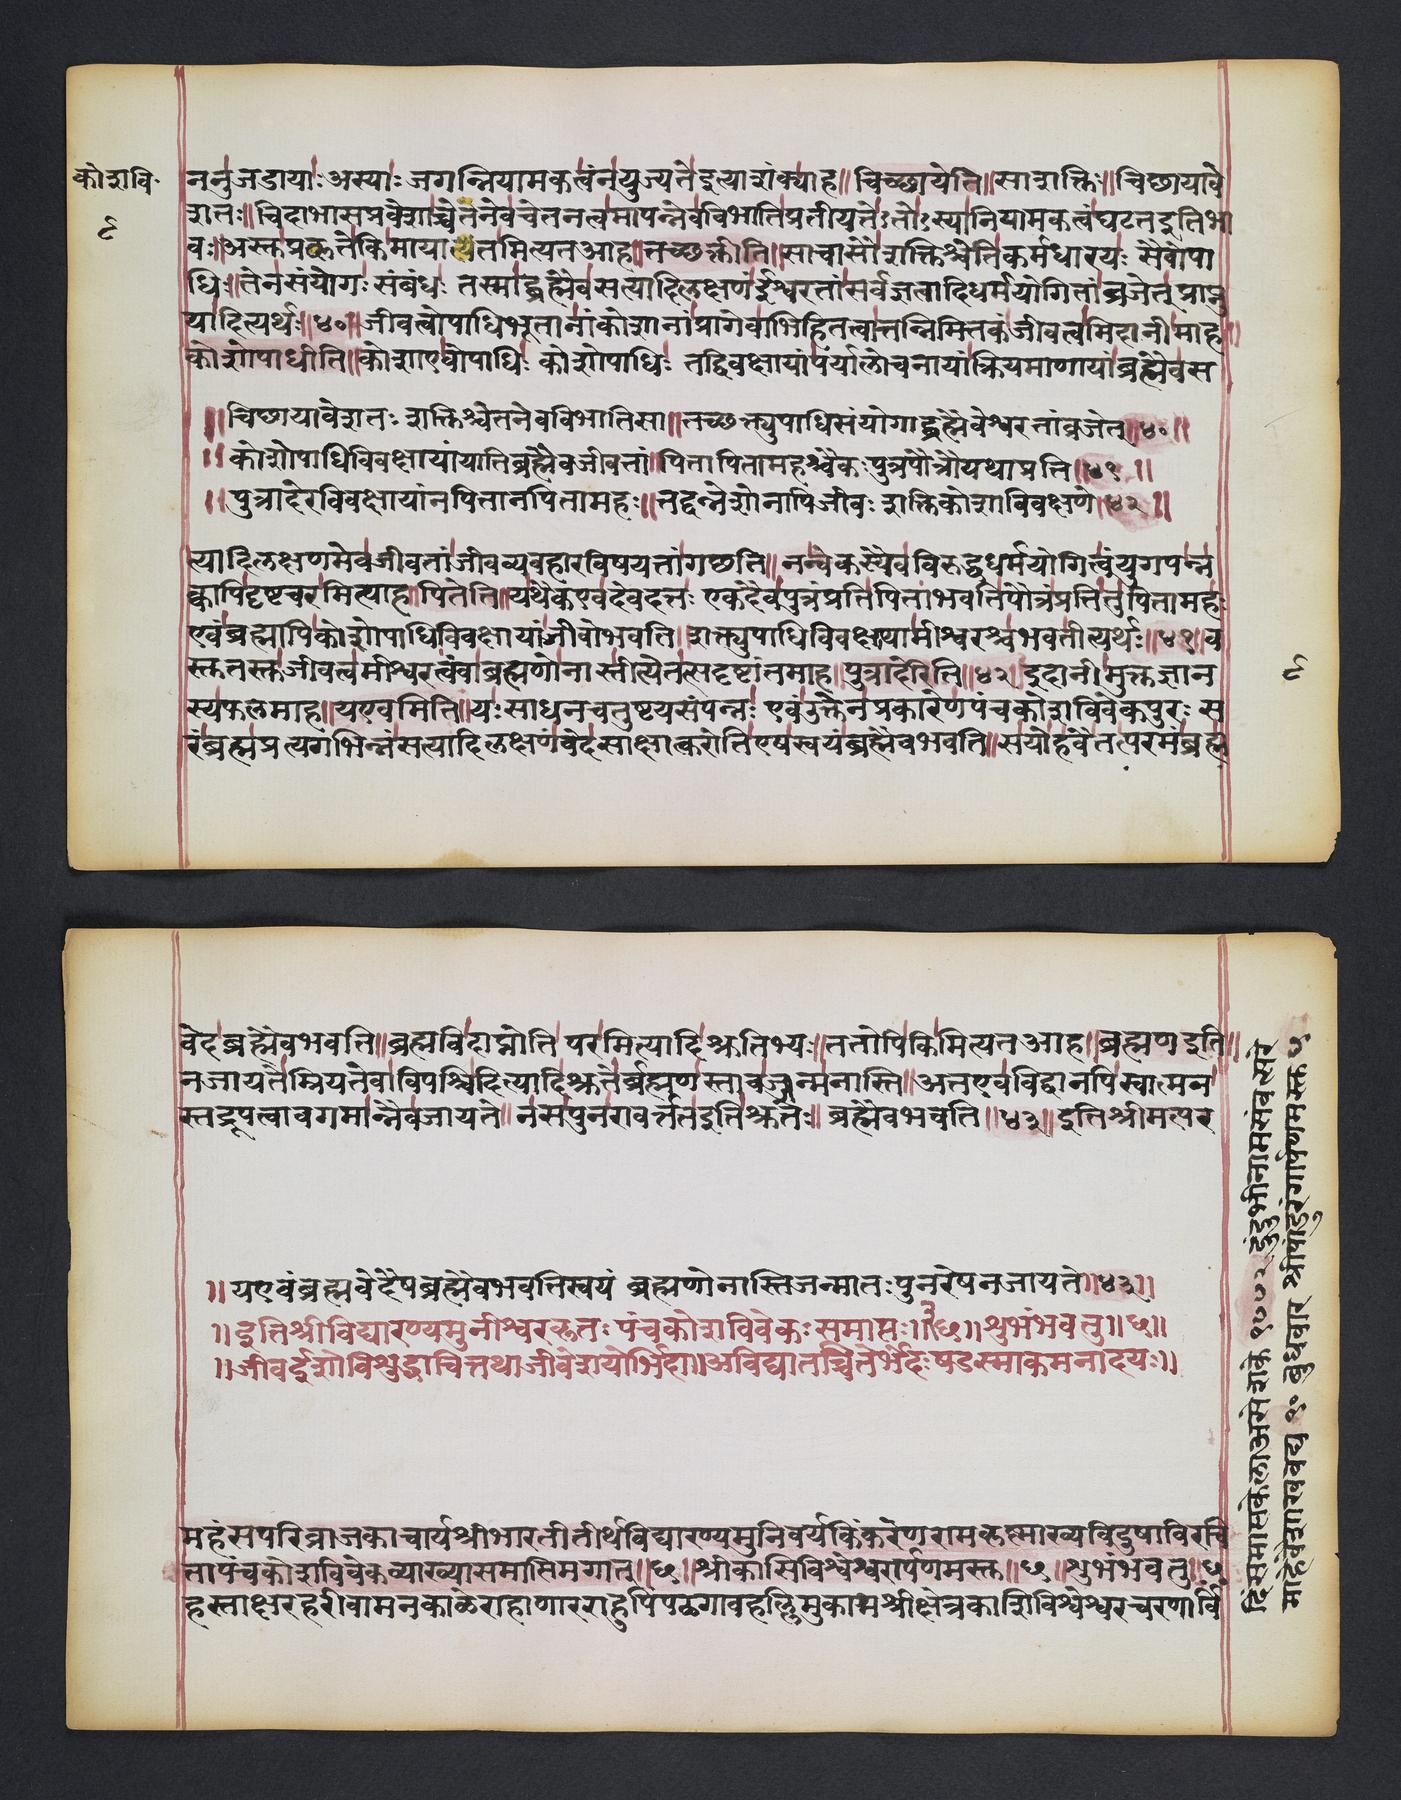 कोशवि·
९
ननुजडायाः अस्याः जगन्नियामकत्वंनयुज्यतेइत्याशंक्याह॥ चिच्छायेति॥ साशक्तिः॥ चिछायावे
शतः॥ चिदाभासप्रवेशाच्चेतनेवचेतनत्वमापन्नेवविभातिप्रतीयतेऽतोऽस्यानियामकत्वंघटतइतिभा
वः॥ अस्तुप्रकृतेकिमायातमित्यतआह॥ तच्छक्तीति॥ साचासौशक्तिश्चेतिकर्मधारयः सैवोपा
धिः॥ तेनसंयोगः संबंधः तस्माद्ब्रह्मैवसत्यादिलक्षणंईश्वरतांसर्वज्ञत्वादिधर्मयोगितांव्रजेत् प्राप्नु
यादित्यर्थः॥ ४०॥ जीवत्वोपाधिभूतानांकोशानांप्रागेवाभिहितत्वात्तन्निमित्तकंजीवत्वमिदानीमाह॥
कोशोपाधीति॥ कोशाएवोपाधिः कोशोपाधिः तद्विवक्षायांपर्यालोचनायांक्रियमाणायांब्रह्मैवस
॥ चिछायावेशतः शक्तिश्चेतनेवविभातिसा॥ तच्छक्त्युपाधिसंयोगाद्ब्रह्मैवेश्वरतांव्रजेत्॥ ४०॥
॥ कोशोपाधिविवक्षायांयातिब्रह्मैवजीवतां॥ पितापितामहश्चैकः पुत्रपौत्रौयथाप्रति॥ ४१॥
॥ पुत्रादेरविवक्षायांनपितानपितामहः॥ तद्वन्नेशोनापिजीवः शक्तिकोशाविवक्षणे॥ ४२॥
त्यादिलक्षणमेवजीवतांजीवव्यवहारविषयतांगछति॥ नन्वेकस्यैवविरुद्धधर्मयोगित्वंयुगपन्न
क्वापिदृष्टचरमित्याह॥ पितेति॥ यथैकएवदेवदत्तः एकदैवपुत्रंप्रतिपिताभवतिपौत्रंप्रतितुपितामहः
एवंब्रह्मापिकोशोपाधिविवक्षायांजीवोभवति॥ शक्त्युपाधिविवक्षायामीश्वरश्चभवतीत्यर्थः॥ ४१॥ व
स्तुतस्तुजीवत्वमीश्वरत्वंवाब्रह्मणोनास्तीत्येतत्सदृष्टांतमाह॥ पुत्रादेरिति॥ ४२॥ इदानीमुक्तज्ञान
स्यफलमाह॥ यएवमिति॥ यः साधनचतुष्टयसंपन्नः एवंउक्तेनप्रकारेणपंचकोशविवेकपुरः स
रंब्रह्मप्रत्यगभिन्नंसत्यादिलक्षणंवेदसाक्षात्करोतिएषस्वयंब्रह्मैवभवति॥ सयोहवैतत्परमंब्रह्म
९
वेदब्रह्मैवभवति॥ ब्रह्मविदाप्नोति परमित्यादिश्रुतिभ्यः॥ ततोपिकिमित्यतआह॥ ब्रह्मणइति॥
नजायतेम्रियतेवाविपश्चिदित्यादिश्रुतेर्ब्रह्मणस्तावज्जन्मनास्ति॥ अतएवविद्वानपिस्वात्मन
स्तद्रूपत्वावगमान्नैवजायते॥ नसपुनरावर्ततइतिश्रुतेः॥ ब्रह्मैवभवति॥ ४३॥ इतिश्रीमत्पर
॥ यएवंब्रह्मवेदैषब्रह्मैवभवतिस्वयं ब्रह्मणोनास्तिजन्मातः पुनरेषनजायते॥ ४३॥
॥ इतिश्रीविद्यारण्यमुनीश्वरकृतः पंचकोशविवेकः समाप्तः॥ ३॥ छ॥ शुभंभवतु॥ छ॥
॥ जीवईशोविशुद्धाचित्तथाजीवेशयोर्भिदा॥ अविद्यातच्चितेर्भेदः षडस्माकमनादयः॥
महंसपरिव्राजकाचार्यश्रीभारतीतीर्थविद्यारण्यमुनिवर्यकिंकरेणरामकृष्णाख्यविदुषाविरचि
तापंचकोशविवेकव्याख्यासमाप्तिमगात्॥ छ॥ श्रीकासिविश्वेश्वरार्पणमस्तु॥ छ॥ शुभंभवतु॥ छ
हस्ताक्षरहरीवामनकाळेराहाणारराहुपिंपळगावहल्लिमुकामश्रीक्षेत्रकाशिविश्वेश्वरचरणार्वि
दिसमासकेलाअसेशके १७७२ दुंदुभीनामसंवत्सर
माहेजेष्ठवद्य १० बुधवार श्रीपांडुरंगार्पणमस्तु